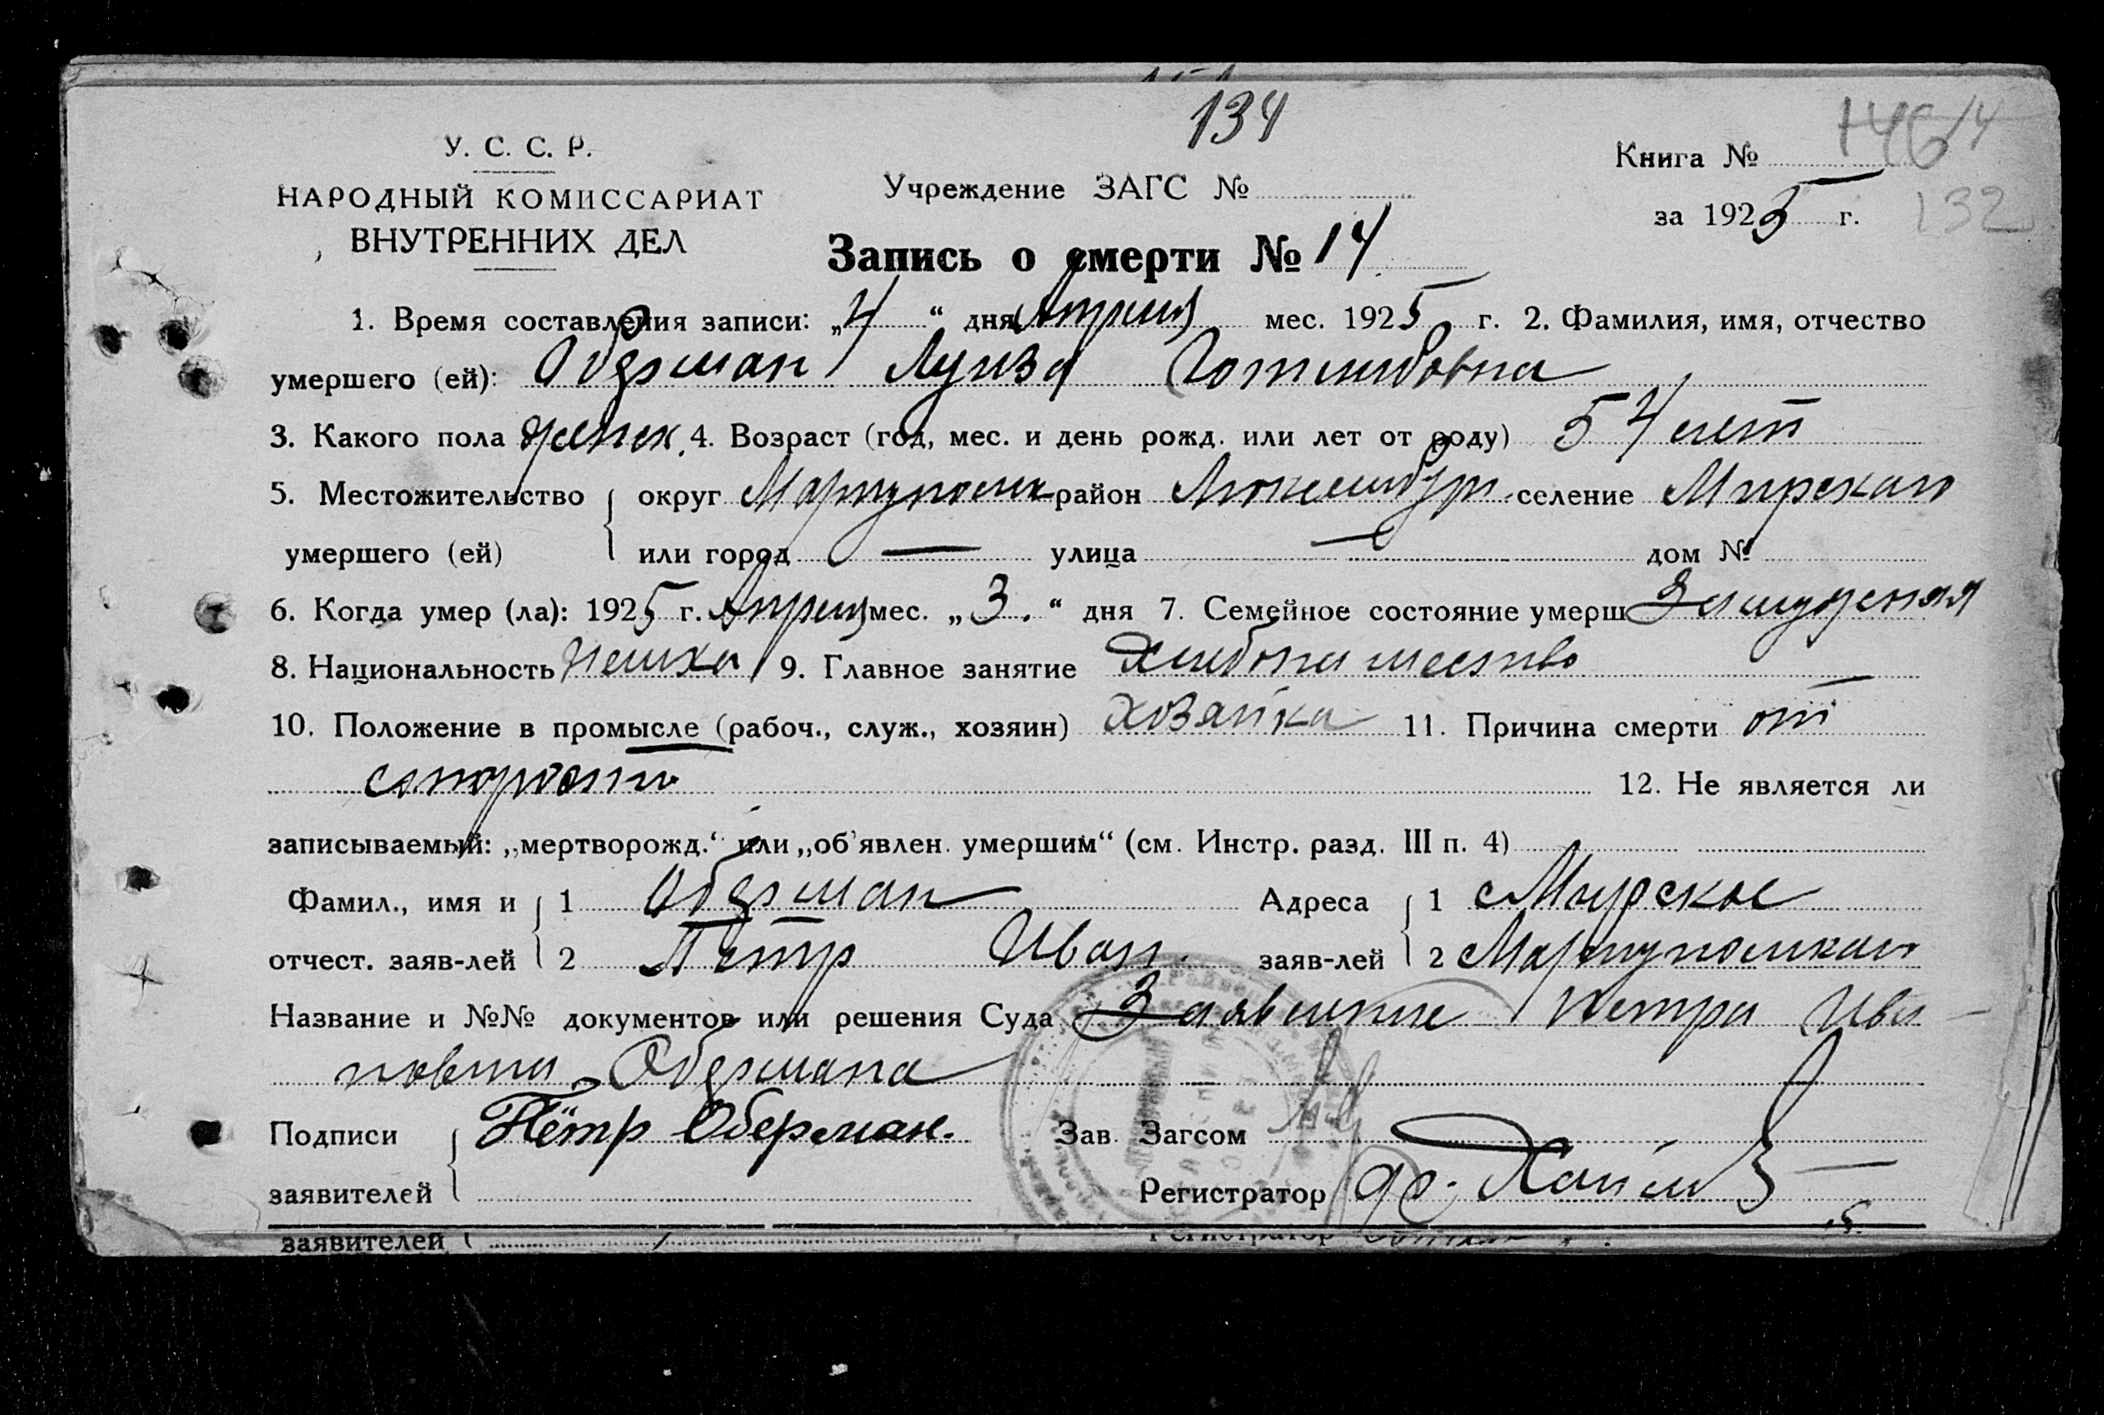 134
У. С. С. Р.
НАРОДНЫЙ КОМИССАРИАТ
ВНУТРЕННИХ ДЕЛ
Учреждение ЗАГС №
Книга № 146 14
за 1925 г. 132
Запись о смерти № 14
1. Время составления записи: „4“ дня Апреля мес. 1925 г. 2. Фамилия, имя, отчество
умершего (ей): Оберман Луиза Готлибовна
3. Какого пола женск. 4. Возраст (год, мес. и день рожд. или лет от роду) 54 лет
5. Местожительство округ Мариупольск район Люксембург. селение Мирского
умершего (ей) или город — улица — дом №
6. Когда умер (ла): 1925 г. Апреля мес. „3.“ дня 7. Семейное состояние умерш Замужняя
8. Национальность Немка 9. Главное занятие Хлебопашество
10. Положение в промысле (рабоч., служ., хозяин) Хозяйка 11. Причина смерти от
старости 12. Не является ли
записываемый: „мертворожд.“ или „об'явлен. умершим“ (см. Инстр. разд. III п. 4)
Фамил., имя и 1 Оберман Адреса 1 с Мирское
отчест. заяв-лей 2 Пётр Иван. заяв-лей 2 Мариупольского
Название и №№ документов или решения Суда Заявление Петра Ива-
новича Обермана
Подписи Пётр Оберман. Зав Загсом
заявителей Регистратор
заявителей Регистратор